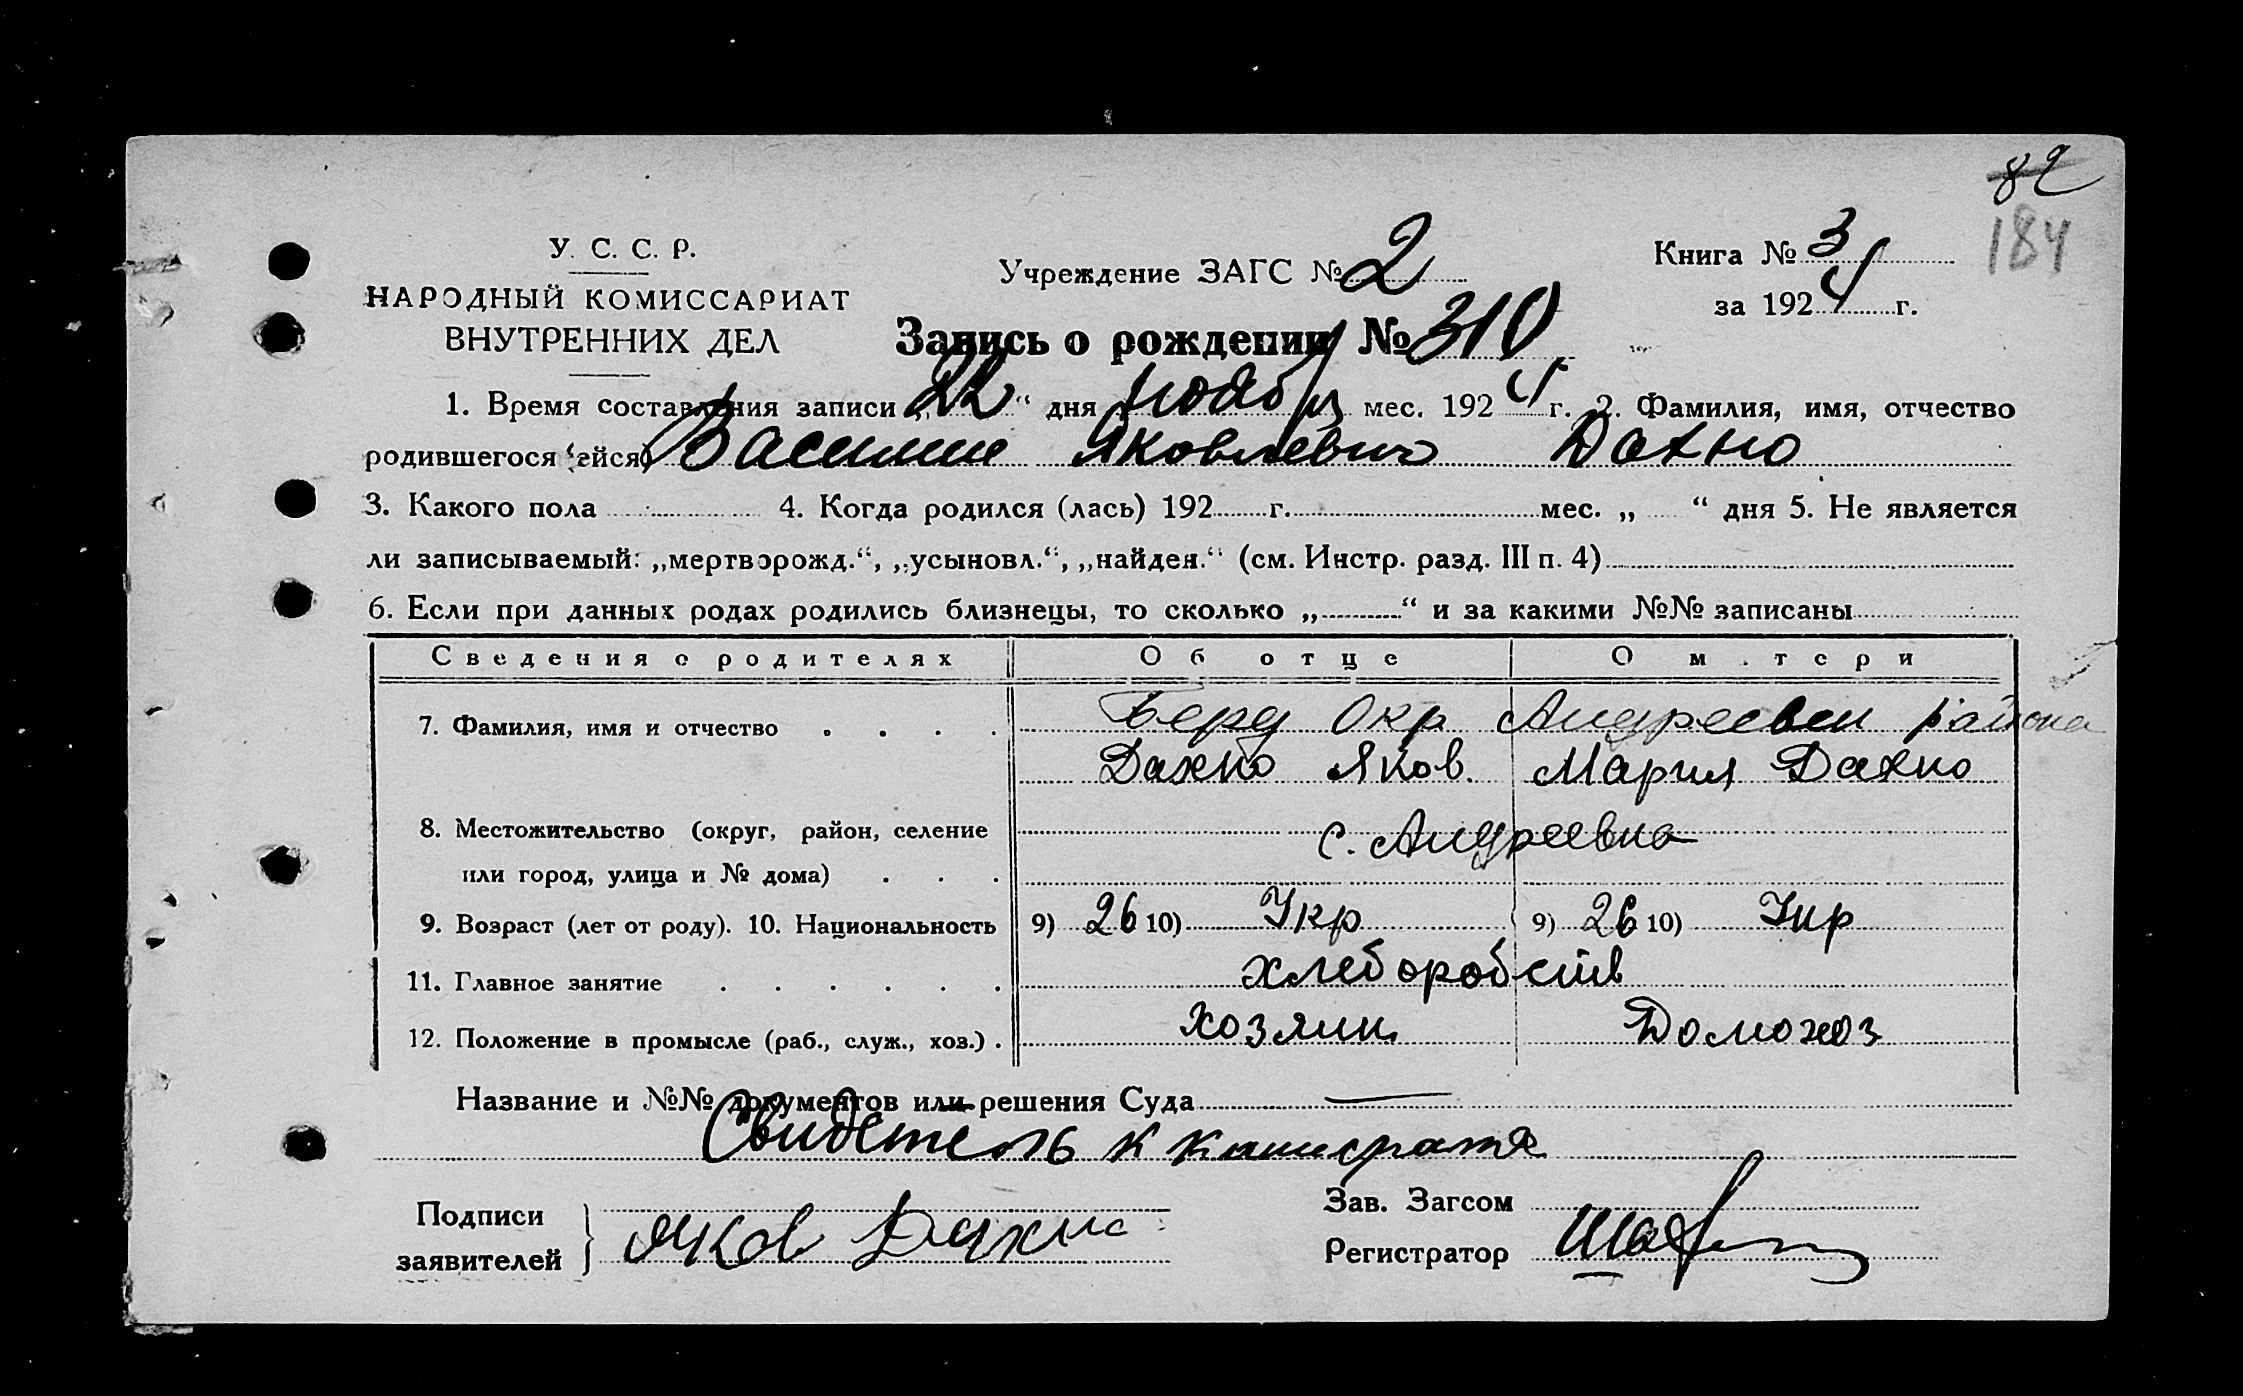 82
184
У. С. С. Р.
НАРОДНЫЙ КОМИССАРИАТ
ВНУТРЕННИХ ДЕЛ
Учреждение ЗАГС № 2
Книга № 3
за 1924 г.
Запись о рождении № 310
1. Время составления записи „22“ дня ноября мес. 1924 г. 2. Фамилия, имя, отчество
родившегося (ейся) Василий Яковлевич Дахно
3. Какого пола 4. Когда родился (лась) 192 г. мес. „ “ дня 5. Не является
ли записываемый: „мертворожд.“, „усыновл.“, „найден.“ (см. Инстр. разд. III п. 4)
6. Если при данных родах родились близнецы, то сколько „ “ и за какими №№ записаны
Сведения о родителях Об отце О матери
7. Фамилия, имя и отчество Берд Окр Андреевск района
Дахно Яков. Мария Дахно
8. Местожительство (округ, район, селение
или город, улица и № дома) с. Андреевка
9. Возраст (лет от роду). 10. Национальность 9) 26 10) Укр 9) 26 10) Укр
11. Главное занятие хлеборобств
12. Положение в промысле (раб., служ., хоз.) хозяин Домохоз
Название и №№ документов или решения Суда —
Свидетель к
Подписи
заявителей Яков Дахно
Зав. Загсом
Регистратор